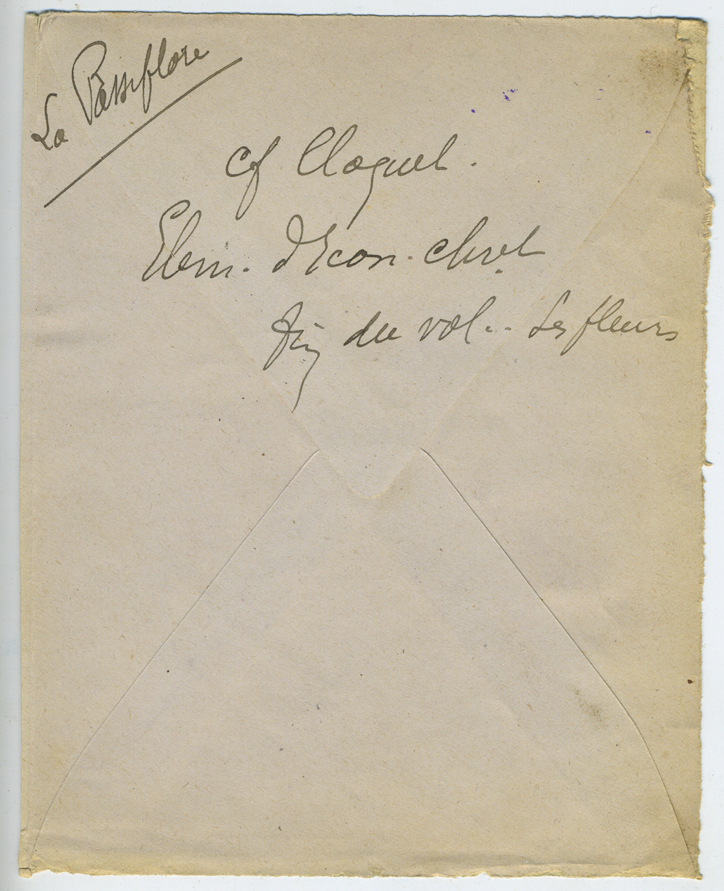 La Passiflore
Cf Cloquet.
Elem. d'Econ. chret
Fin du vol... Les fleurs